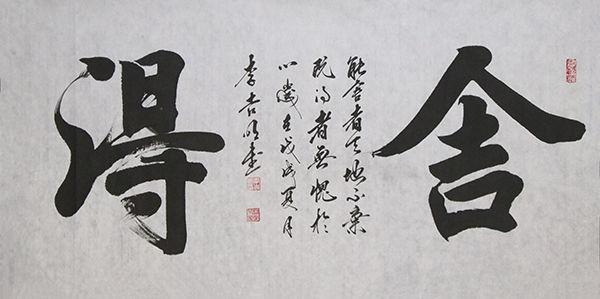 舍
能舍者天地不棄
既得者無愧於
心歲在戊戌夏月
李吉書
得